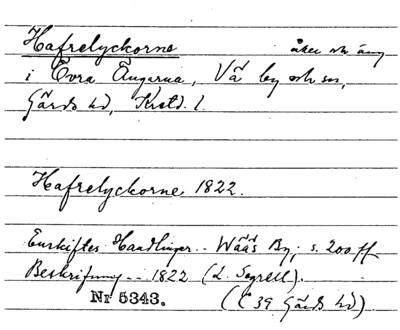 Hafrelyckorne åker och äng
i Övra Ängarna, Vä by och sn,
Gärds hd, Krstd. l.
Hafrelyckorne 1822.
Enskiftes Handlingar.. Wääs By; s. 200 ff
Beskrifning.. 1822 (L. Segrell).
Nr 5343. (C 39 Gärds hd)